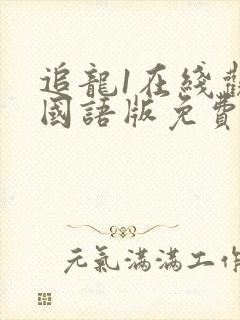 追龍1在綫觀
國語版免費
元氣滿滿工作